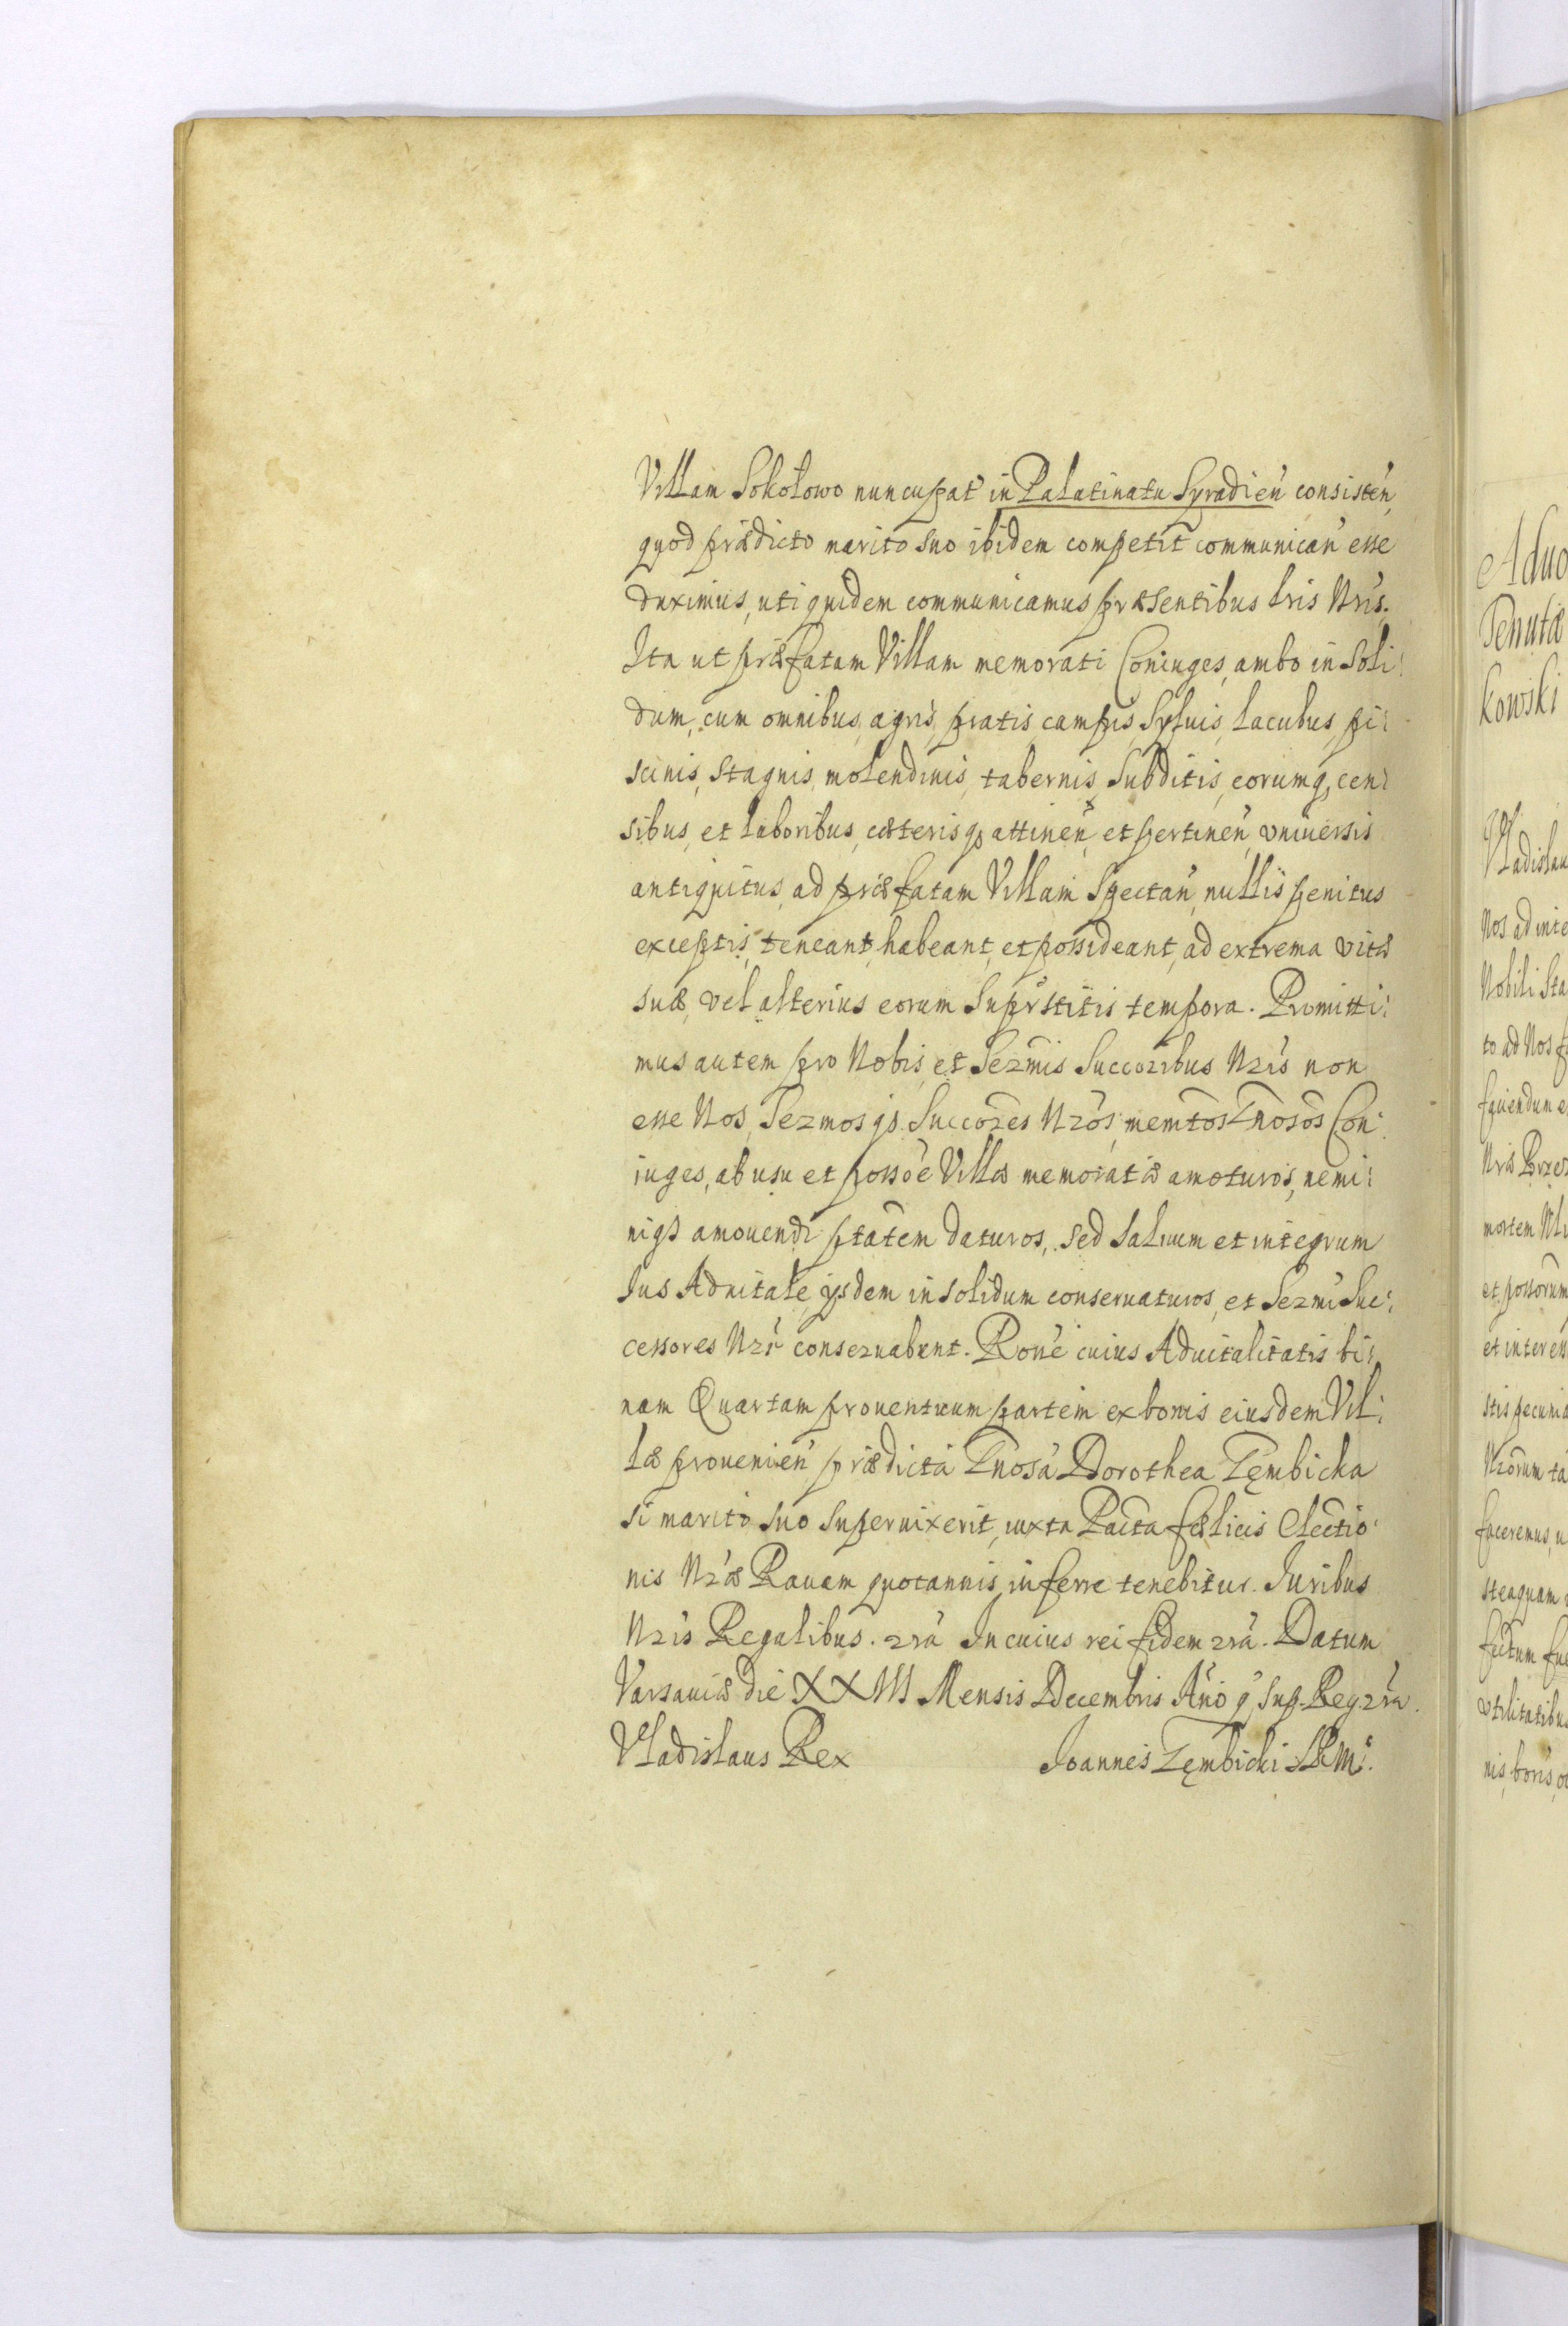 Villam Sokołowo nuncupat' in Palatinatu Syradien' consisten',
quod prædicto marito suo ibidem competit communican' esse
duximus, uti quidem communicamus præsentibus lris Nris.
Ita ut præfatam Villam memorati Coniuges, ambo in Soli:
dum, cum omnibus, agris, pratis, campis, Syluis, lacubus, pi:
scinis, Stagnis, molendinis, tabernis, Subditis, eorumq, cen:
sibus, et laboribus, cæterisq attinen', et pertinen', vniuersis
antiquitus, ad præfatam Villam Spectan', nullis penitus
exceptis, teneant, habeant, et possideant, ad extrema vitæ
suæ, vel alterius eorum Suprstitis tempora. Promitti:
mus autem pro Nobis, et Sermis Succoribus Nris non
esse Nos, Sermosq. Succores Nros, memtos Gnosos Con:
iuges, ab usu et possoe Villæ memoratæ amoturos, nemi:
niq amouendi ptatem daturos, sed Saluum et integrum
Ius Aduitale, ysdem in solidum conseruaturos, et Sermi Suc:
cessores Nri conseruabunt. Rone cuius Aduitalitatis bi:
nam Quartam prouentuum partem ex bonis eiusdem Vil:
læ prouenien' prædicta Gnosa Dorothea Łęmbicka
si marito suo Superuixerit, iuxta Pacta fælicis Electio:
nis Nræ Rauam quotannis, inferre tenebitur. Iuribus
Nris Regalibus. zra In cuius rei fidem zra. Datum
Varsauiæ die XXIII Mensis Decembris Ano q' Sup. Reg. zra.
Vladislaus Rex Ioannes Łęmbicki
Aduo
Tenutæ
kowski
Vladislau
Nos ad inte
Nobili Sta
to ad Nos
mortem
et possorum
et interess
stis pecunia
Nrorum ta
faceremus, u
steaquam
vtilitatibus
nis, boris,